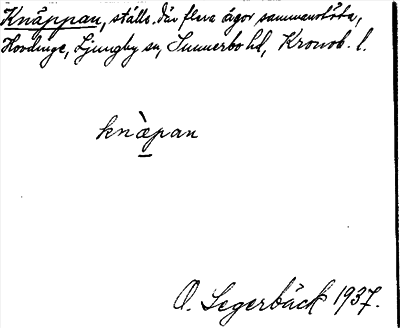 Knäppan, ställe där flera ägor sammanstöta,
Hovdinge, Ljungby sn, Sunnerbo hd, Kronob. l.
knæ̀pan
O. Segerbäck 1937.